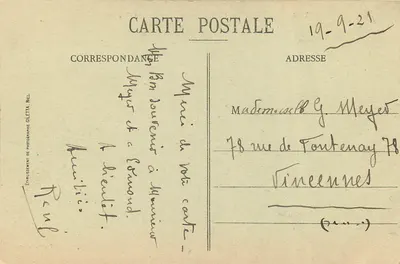 CARTE POSTALE
19-9-21
CORRESPONDANCE
ADRESSE
Merci de votre carte –
Mon Bon souvenir à Monsieur
Meyer et à Edmond.
A bientôt.
Amitiés
René
Mademoiselle G. Meyer
78 rue de Fontenay 78
Vincennes
(Seine)